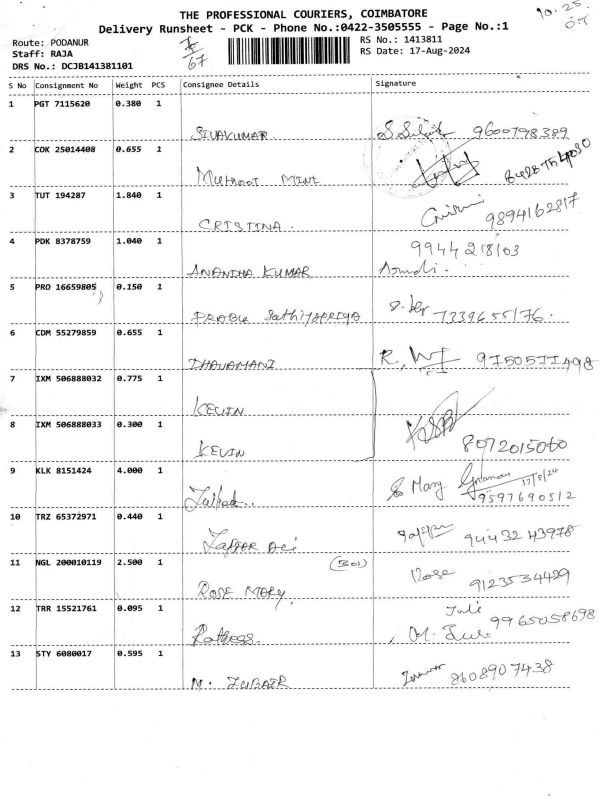 THE PROFESSIONAL COURIERS, COIMBATORE
Delivery Runsheet - PCK - Phone No.:0422-3505555 - Page No.:1
10.25
Route: PODANUR
RS No.: 1413811
Staff: RAJA
67
RS Date: 17-Aug-2024
DRS No.: DCJB141381101
S No Consignment No Weight PCS Consignee Details Signature
1 PGT 7115620 0.380 1
SIVAKUMAR 9600798389
2 COK 25014408 0.655 1
Muthoot MINI
3 TUT 194287 1.840 1
CRISTINA. 9894162817
4 PDK 8378759 1.040 1 9944218103
ANANDHA KUMAR
5 PRO 16659805 0.150 1
PRABU SathiYAPRIYA 7339655176.
6 CDM 55279859 0.655 1
DHAVAMANI R. 9750577498
7 IXM 506888032 0.775 1
KEVIN
8 IXM 506888033 0.300 1
KEVIN 8072015060
9 KLK 8151424 4.000 1
Mary 17/8/24
9597690512
10 TRZ 65372971 0.440 1
JAFFAR ALi 94432 43978
11 NGL 200010119 2.500 1 (301)
ROSE MARY. Rose 9123534429
12 TRR 15521761 0.095 1
Juli 9965058698
13 STY 6080017 0.595 1
M. JUBAIR 8608907438